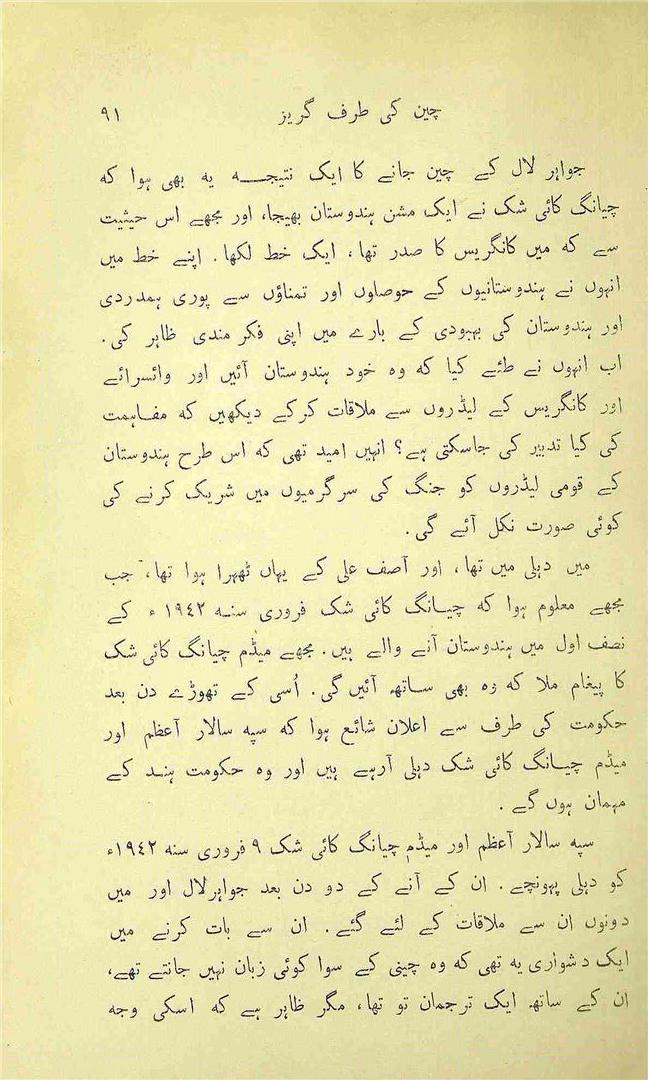 چین کی طرف گریز ۹۱
جواہر لال کے چین جانے کا ایک نتیجہ یہ بھی ہوا کہ
چیانگ کائی شک نے ایک مشن ہندوستان بھیجا، اور مجھے اس حیثیت
سے کہ میں کانگریس کا صدر تھا، ایک خط لکھا۔ اپنے خط میں
انہوں نے ہندوستانیوں کے حوصلوں اور تمناؤں سے پوری ہمدردی
اور ہندوستان کی بہبودی کے بارے میں اپنی فکر مندی ظاہر کی۔
اب انہوں نے طئے کیا کہ وہ خود ہندوستان آئیں اور وائسرائے
اور کانگریس کے لیڈروں سے ملاقات کرکے دیکھیں کہ مفاہمت
کی کیا تدبیر کی جاسکتی ہے؟ انہیں امید تھی کہ اس طرح ہندوستان
کے قومی لیڈروں کو جنگ کی سرگرمیوں میں شریک کرنے کی
کوئی صورت نکل آئے گی۔
میں دہلی میں تھا، اور آصف علی کے یہاں ٹھہرا ہوا تھا، جب
مجھے معلوم ہوا کہ چیانگ کائی شک فروری سنہ ۱۹۴۲ ء کے
نصف اول میں ہندوستان آنے والے ہیں۔ مجھے میڈم چیانگ کائی شک
کا پیغام ملا کہ وہ بھی ساتھ آئیں گی۔ اُسی کے تھوڑے دن بعد
حکومت کی طرف سے اعلان شائع ہوا کہ سپہ سالار آعظم اور
میڈم چیانگ کائی شک دہلی آرہے ہیں اور وہ حکومت ہند کے
مہمان ہوں گے۔
سپہ سالار آعظم اور میڈم چیانگ کائی شک ۹ فروری سنہ ۱۹۴۲ء
کو دہلی پہونچے۔ ان کے آنے کے دو دن بعد جواہرلال اور میں
دونوں ان سے ملاقات کے لئے گئے۔ ان سے بات کرنے میں
ایک دشواری یہ تھی کہ وہ چینی کے سوا کوئی زبان نہیں جانتے تھے،
ان کے ساتھ ایک ترجمان تو تھا، مگر ظاہر ہے کہ اسکی وجہ